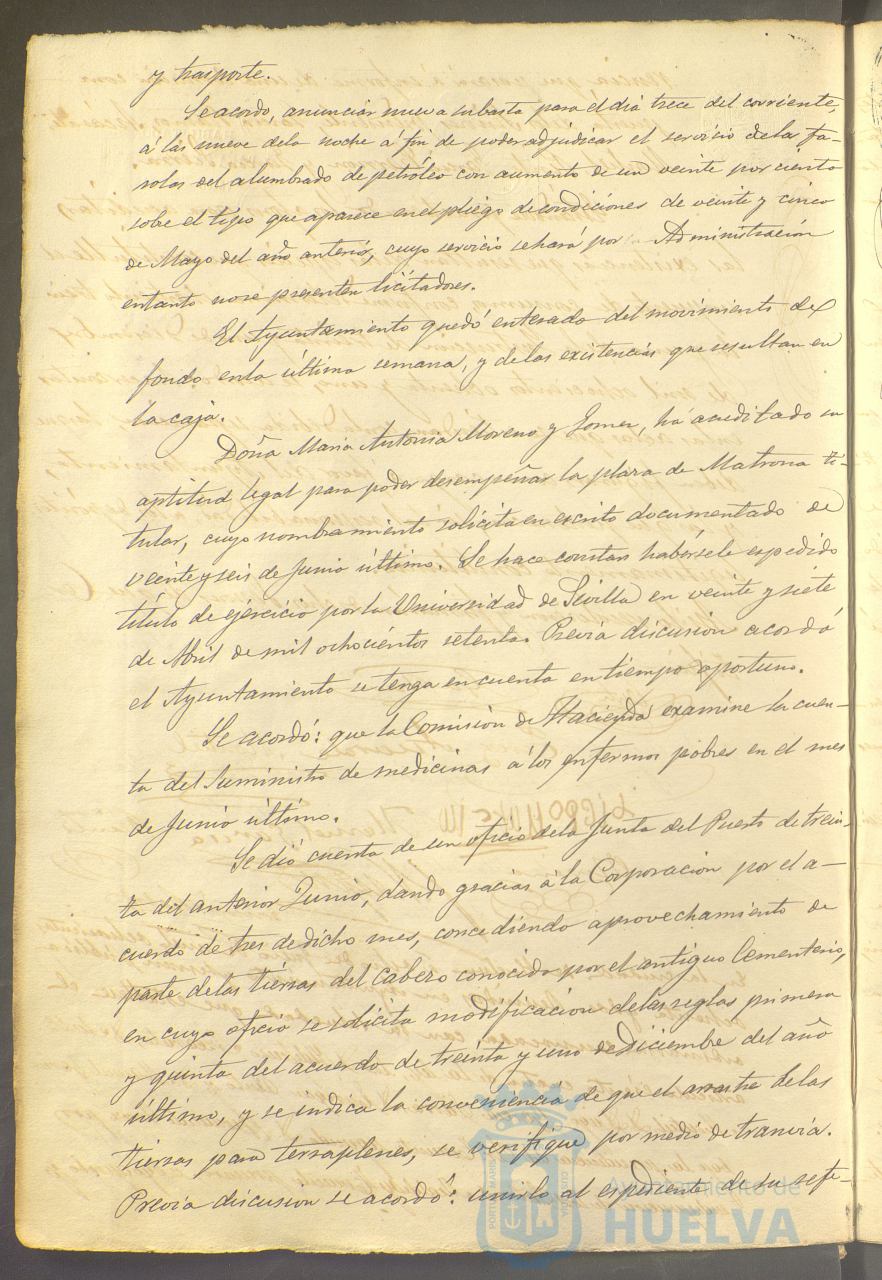 y trasporte.
Se acordo, anunciar nueva subasta para el dia trece del corriente,
á las nueve dela noche á fin de poder adjudicar el servicio delas fa-
rolas del alumbrado de petróleo con aumento de un veinte por ciento
sobre el tipo que aparece en el pliego de condiciones de veinte y cinco
de Mayo del año anterior, cuyo servicio se hará por Administración
entanto nose presenten licitadores.
El Ayuntamiento quedó enterado del movimiento de
fondo enla última semana, y delas existencias que resultan en
la caja.
Doña Maria Antonia Moreno y Gomez, ha acreditado su
aptitud legal para poder desempeñar la plaza de Matrona ti-
tular, cuyo nombramiento solicita en escrito documentado de
veinte y seis de Junio último. Se hace constar habérsele espedido
título de ejercicio por la Universidad de Sevilla en veinte y siete
de Abril de mil ochocientos setenta. Previa discusion acordó
el Ayuntamiento se tenga en cuenta en tiempo oportuno.
Se acordó: que la Comisión de Hacienda examine la cuen-
ta del Suministro de medicinas á los enfermos pobres en el mes
de Junio último.
Se dió cuenta de un oficio dela Junta del Puerto de trein-
ta del anterior Junio, dando gracias á la Corporacion por el a-
cuerdo de tres de dicho mes, concediendo aprovechamiento de
parte delas tierras del Cabezo conocido por el antiguo Cementerio,
en cuyo oficio se solicita modificacion delas reglas primera
y quinta del acuerdo de treinta y uno de Diciembre del año
último, y se indica la conveniencia de que el arrastre delas
tierras para terraplenes, se verifique por medio de tranvía.
Previa discusion se acordó: unirlo al espediente de su refe-
Ayuntamiento de
HUELVA